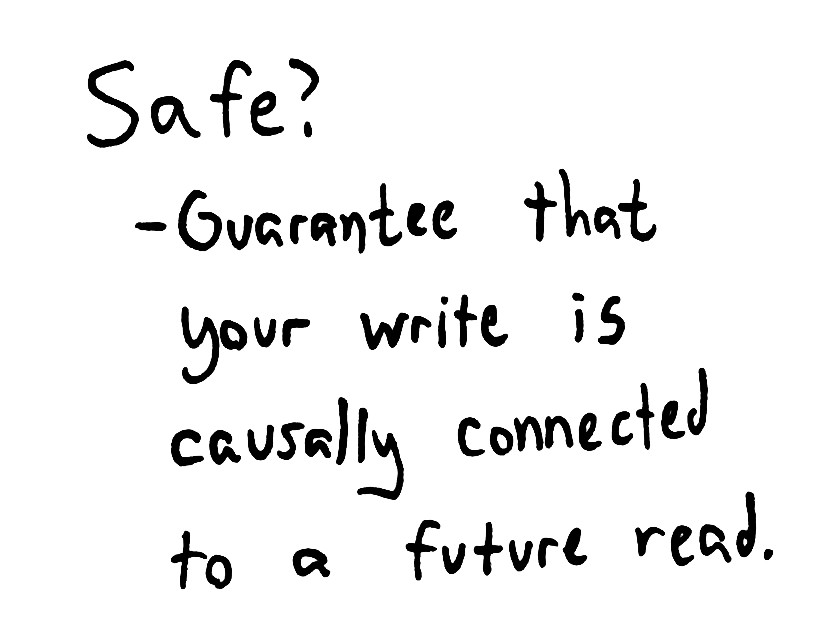 Safe?
- Guarantee that
your write is
causally connected
to a future read.